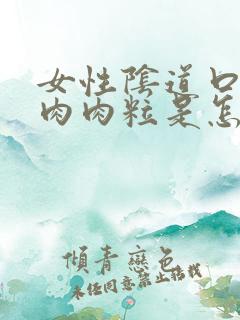 女性陰道口
肉肉粒是怎
傾青戀色
未任同意禁止搭載